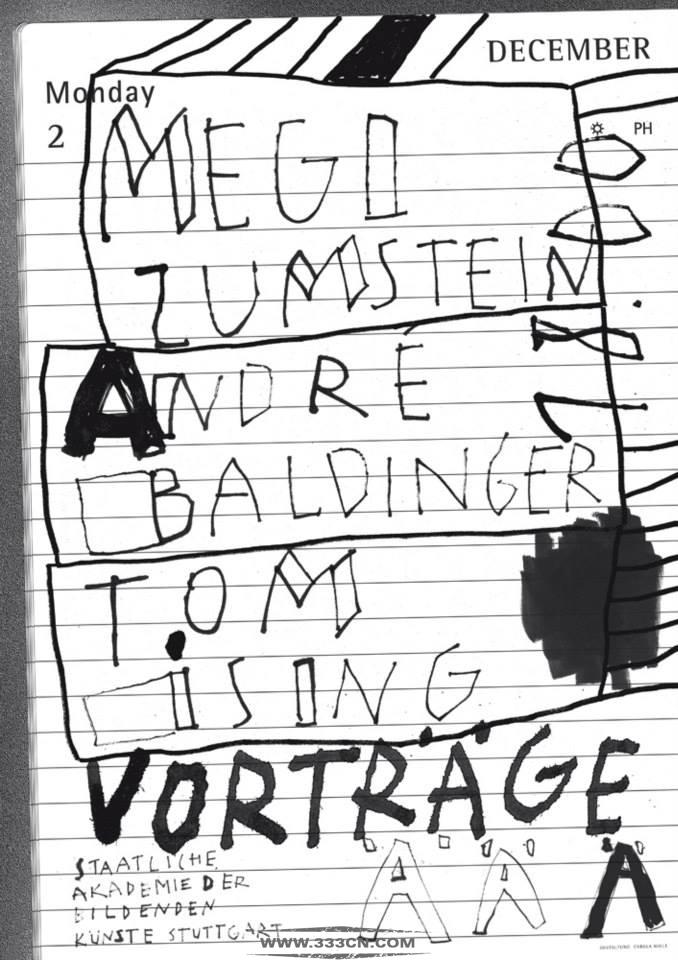 DECEMBER
Monday
2
PH
MEGI
ZUMSTEIN
17.00
ANDRÉ
BALDINGER
TOM
ISING
VORTRÄGE
STAATLICHE
AKADEMIE DER
BILDENDEN
KÜNSTE STUTTGART
Ä Ä Ä
WWW.333CN.COM